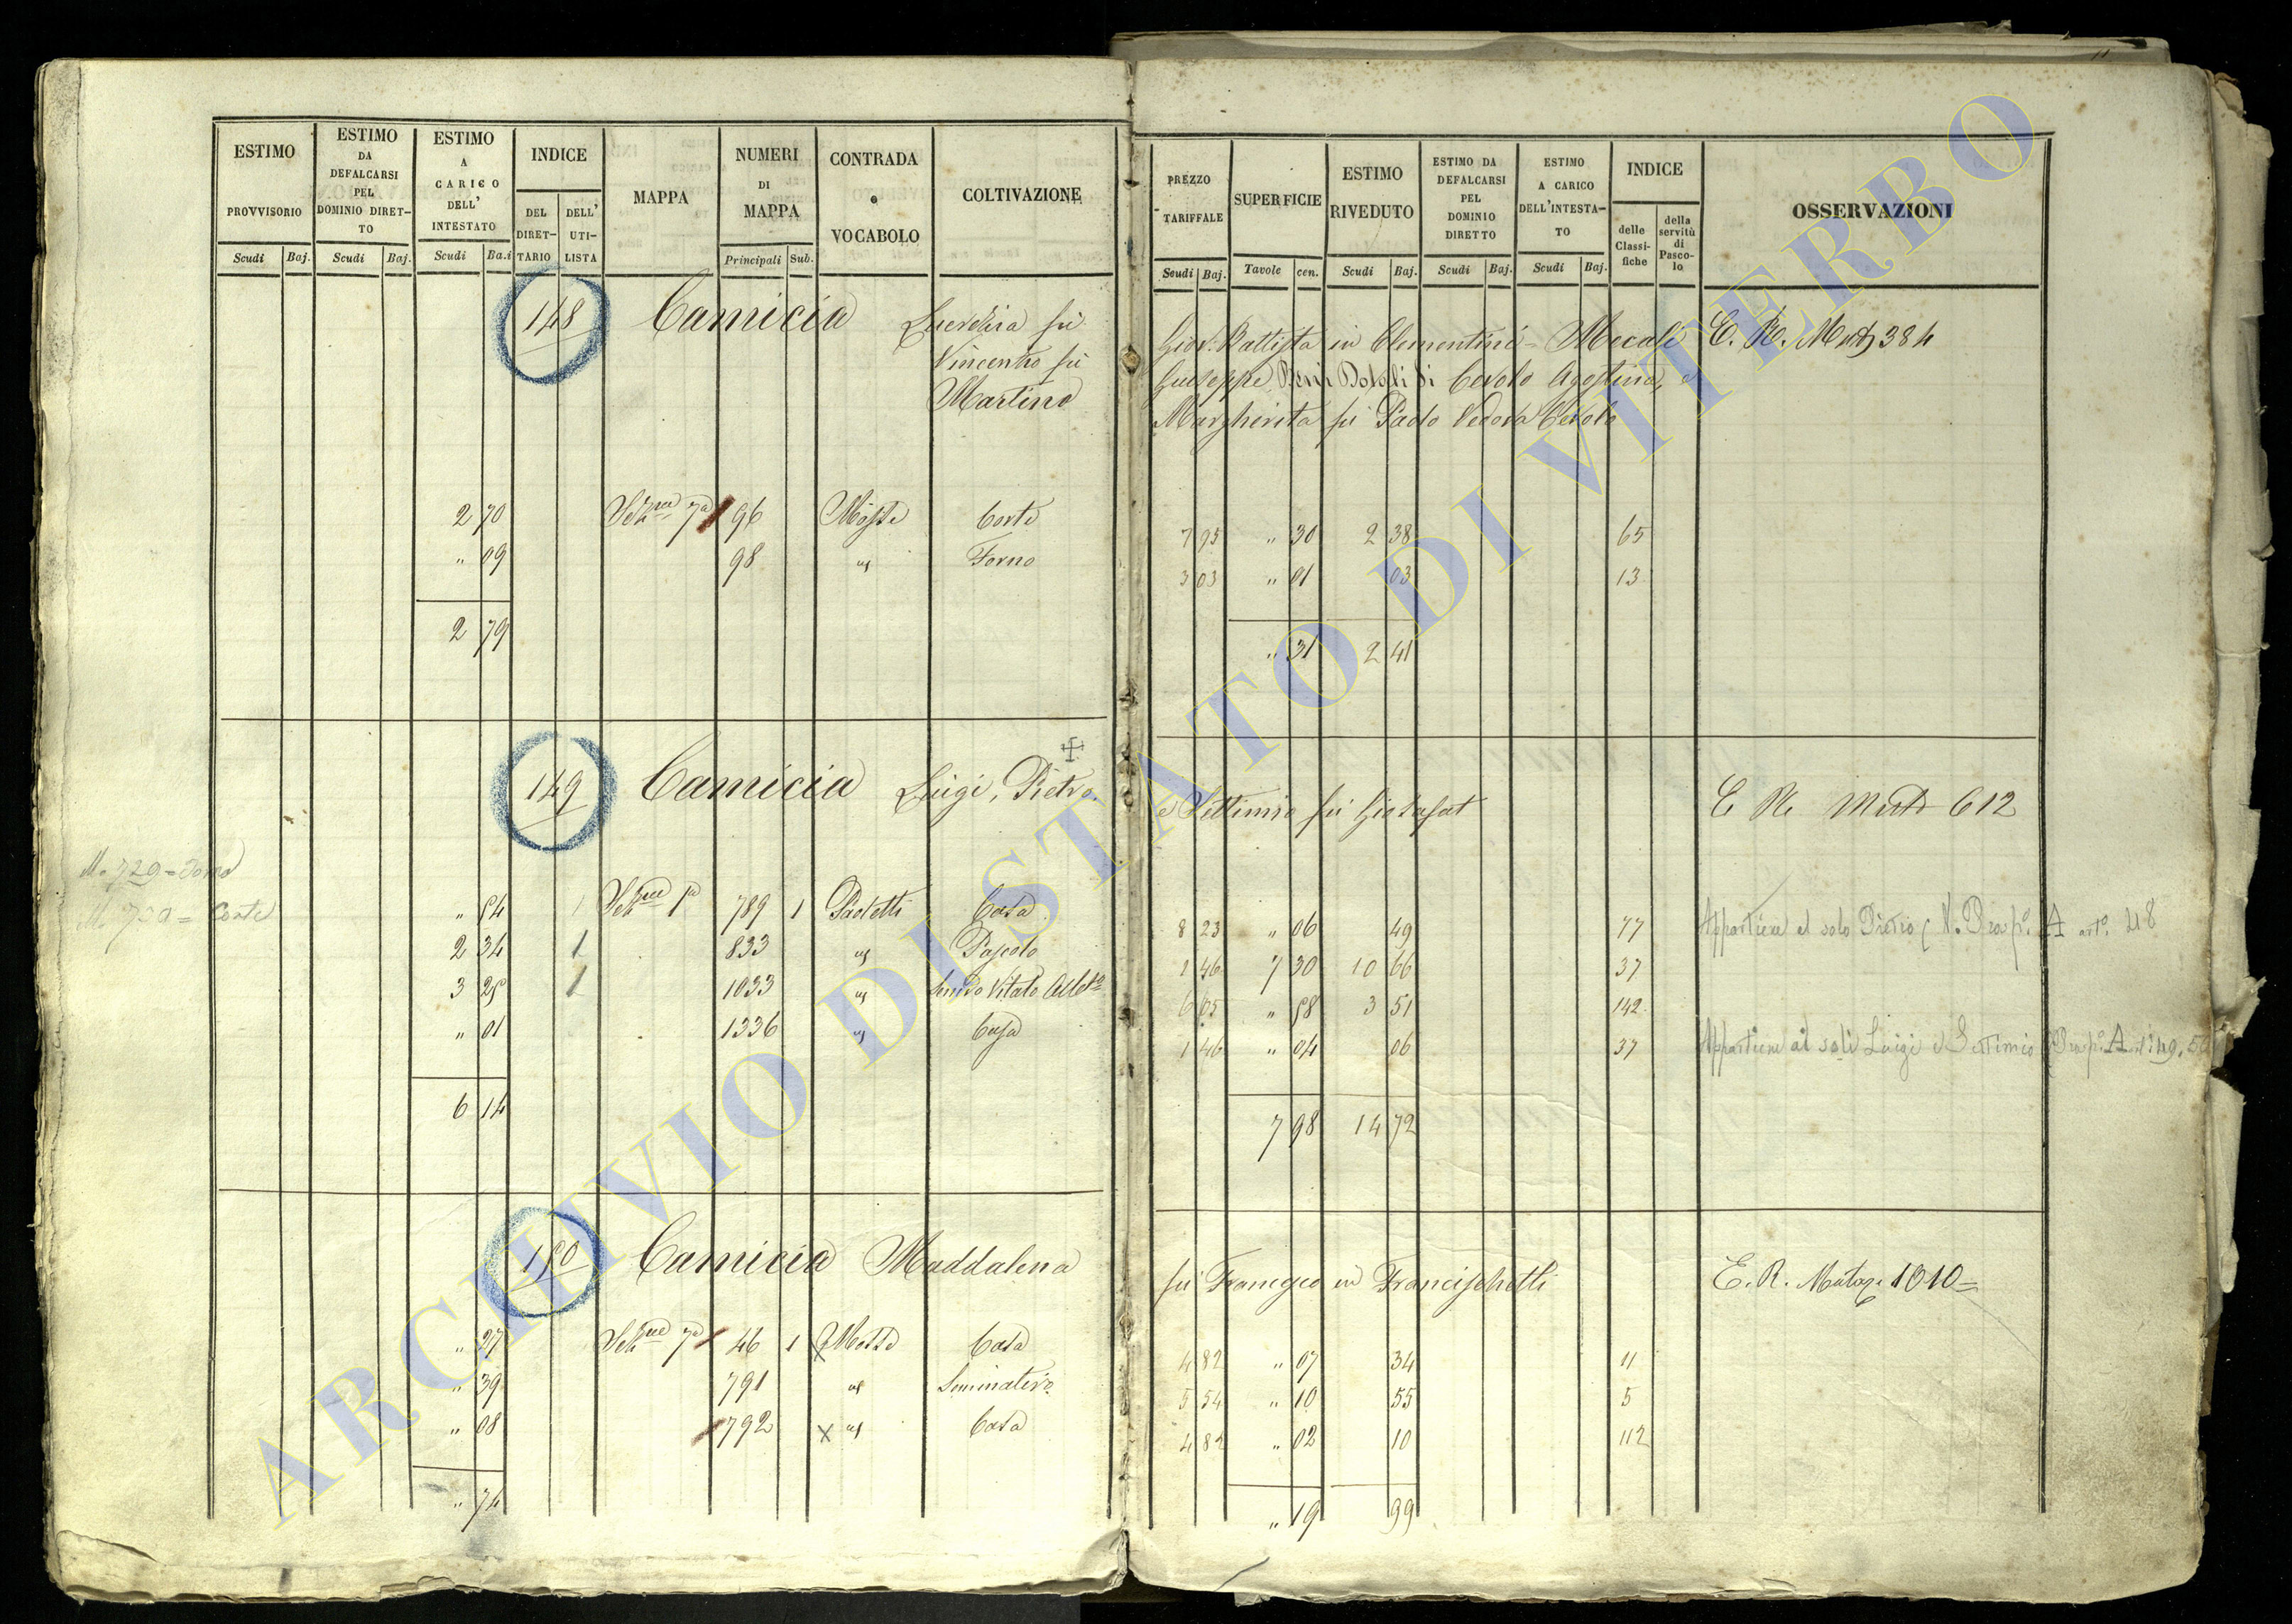 ESTIMO PROVVISORIO Scudi Baj.
ESTIMO DA DEFALCARSI PEL DOMINIO DIRET-TO Scudi Baj.
ESTIMO A CARICO DELL' INTESTATO Scudi Ba.i
INDICE DEL DIRET-TARIO DELL' UTI-LISTA
MAPPA
NUMERI DI MAPPA Principali Sub.
CONTRADA e VOCABOLO
COLTIVAZIONE
PREZZO TARIFFALE Scudi Baj.
SUPERFICIE Tavole cen.
ESTIMO RIVEDUTO Scudi Baj.
ESTIMO DA DEFALCARSI PEL DOMINIO DIRETTO Scudi Baj.
ESTIMO A CARICO DELL'INTESTA-TO Scudi Baj.
INDICE delle Classi-fiche della servitù di Pasco-lo
OSSERVAZIONI
148 Camicia Lucrezia fu
Vincenzo fu
Martino
Giov: Battista in Clementini = Mecali
Giuseppe di Cerolo Agostino, e
Margherita fu Paolo Vedova Cerolo
E. R. 384
2 70 7a 96 Corte 7 95 " 30 2 38 65
" 09 98 Forno 3 03 " 01 03 13
2 79 " 31 2 41
149 Camicia Luigi, Pietro
e Settimio fu Giosafat
E R 612
M. 729 = Forno
Corte
" 54 789 1 Paoletti Casa 8 23 " 06 49 77 Appartiene al solo Pietro art. 48
2 34 1 833 Pascolo 1 46 7 30 10 66 37
3 25 1 1033 6 05 " 58 3 51 142
" 01 1336 Casa 1 46 " 04 06 37 Appartiene ai soli Luigi e Settimio
6 14 7 98 14 72
150 Camicia Maddalena
fu Francesco in Francischetti
E. R. 1010 =
" 27 7a 46 1 Casa 4 82 " 07 34 11
" 39 791 Seminativo 5 54 " 10 55 5
" 08 792 x Casa 4 82 " 02 10 112
" 74 " 19 99
ARCHIVIO DI STATO DI VITERBO